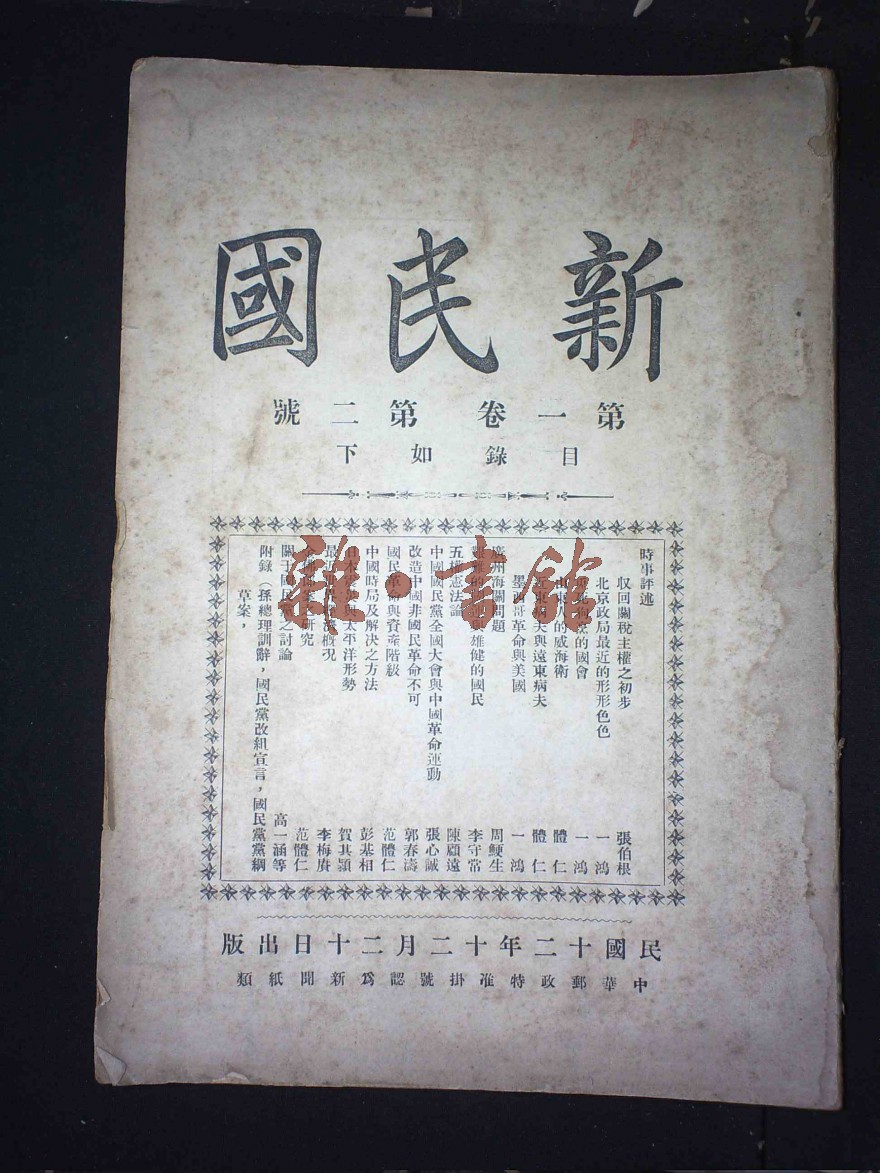 新民國
第一卷第二號
目錄如下
時事評述
收回關稅主權之初步 張伯根
北京政局最近的形形色色 一鴻
的國會 一鴻
的威海衛 體仁
近東病夫與遠東病夫 體仁
墨西哥革命與美國 一鴻
廣州海關問題 周鯁生
雄健的國民 李守常
五權憲法論 陳顧遠
中國國民黨全國大會與中國革命運動 張心誠
改造中國非國民革命不可 郭春濤
國民革命與資產階級 范體仁
中國時局及解決之方法 彭基相
與太平洋形勢 賀其穎
最近世界 概況 李梅賡
研究 范體仁
關于國民黨之討論 高一涵等
附錄（孫總理訓辭，國民黨改組宣言，國民黨黨綱
草案，
民國十二年十二月二十日出版
中華郵政特准掛號認爲新聞紙類
雜·書館